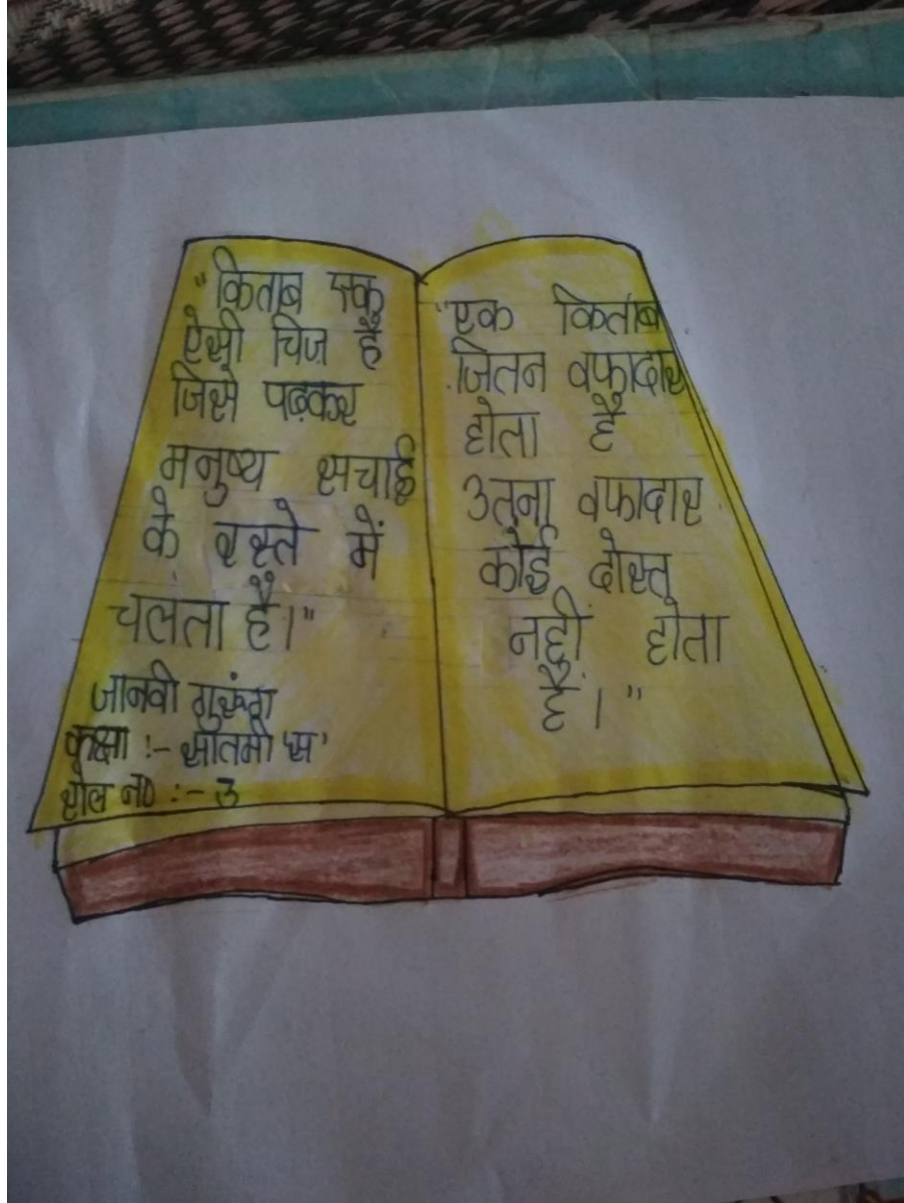 "किताब एक
ऐसी चिज़ है
जिसे पढ़कर
मनुष्य सचाई
के रास्ते में
चलता है।"
जानवी गुरुंग
कक्षा :- सातमी 'स'
रोल न० :- 3
"एक किताब
जितन वफादार
होता है
उतना वफादार
कोई दोस्त
नहीं होता
है।"